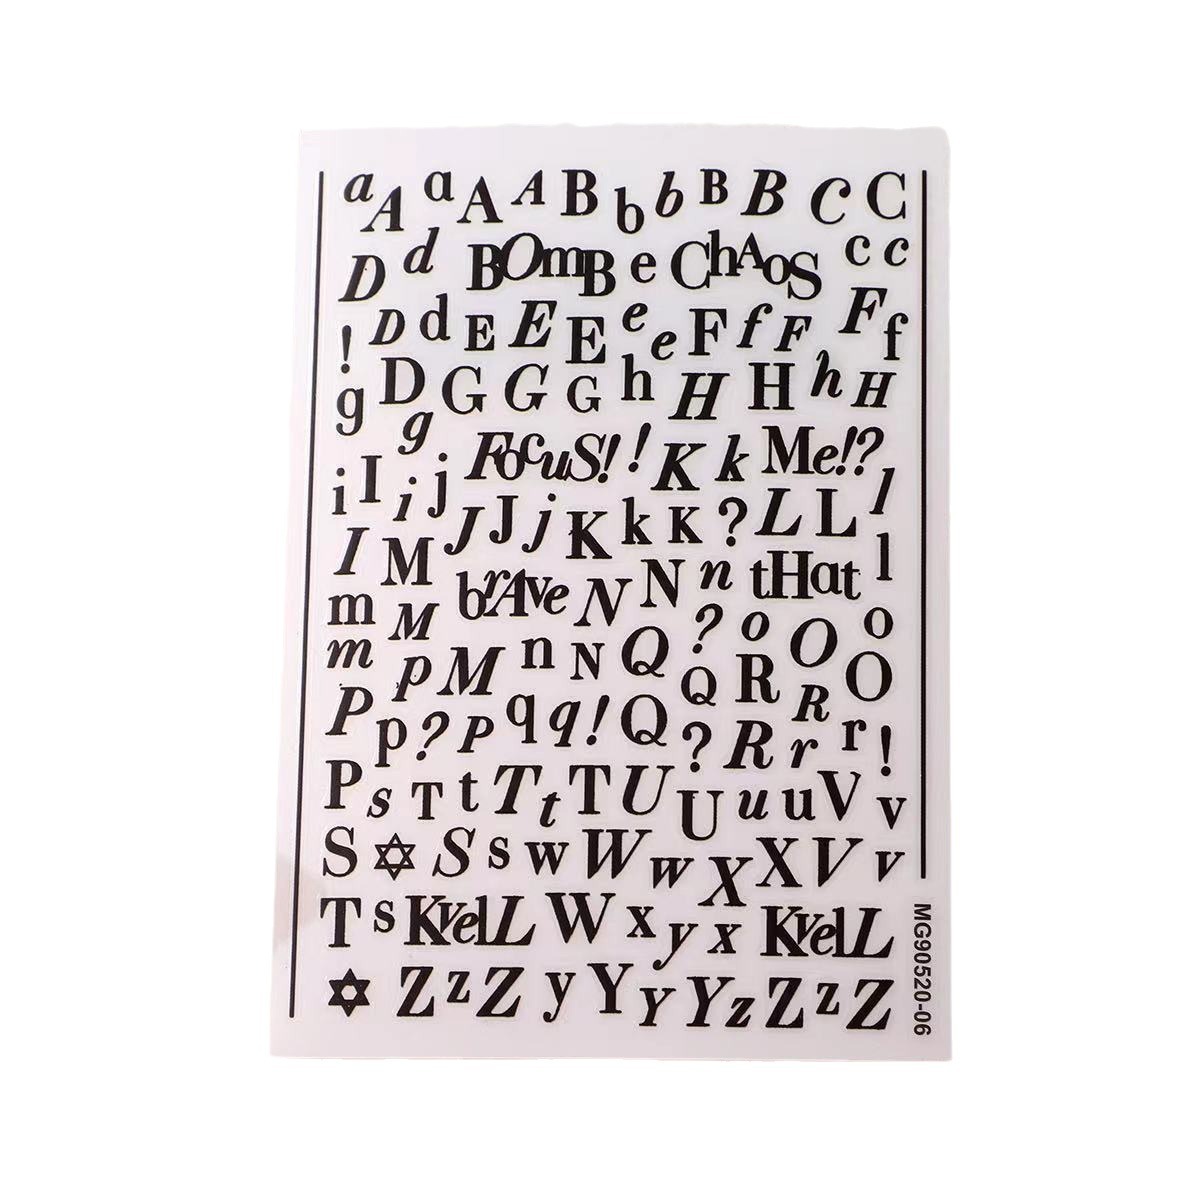 a A a A A B b b B B C C
D d BOmBB e ChAoS c c
! D d E E E e e F f F F f
g D G G G h H H h H
g FocuS! ! K k Me!?
i I i j J J j K k K ? L L l
I M brAve N N n tHat l
m M ? o O o
m p M n N Q Q R R O
P p ? P q q ! Q ? R r r !
P s T t T t T U U u u V v
S ✡ S s w W w X X V v
T s KvelL W x y x KvelL
✡ Z z Z y Y Y Y z Z z Z
MG90520-06